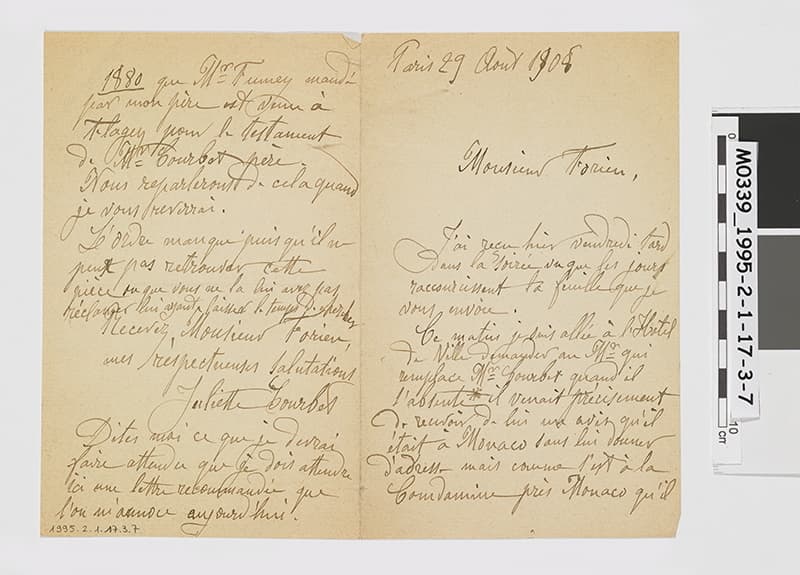 Paris 29 Août 1908
Monsieur Forien,
J'ai reçu hier vendredi tard
dans la soirée vu que les jours
raccourcissent la feuille que je
vous envoie.
Ce matin je suis allée à l'Hôtel
de Ville demander au Mr qui
remplace Mr Courbet quand il
s'absente il venait précisement
de recevoir de lui un avis qu'il
était à Monaco sans lui donner
d'adresse mais comme c'est à la
Condamine près Monaco qu'il
1880 que Mr Fumey mandé
par mon père est venu à
Flagey pour le testament
de Mr Courbet père.
Nous reparlerons de cela quand
je vous reverrai.
L'ordre manque puisqu'il ne
peut pas retrouver cette
pièce ou que vous ne la lui avez pas
réclamée lui ayant laisser le temps de chercher
Recevez, Monsieur Forien,
mes respectueuses salutations
Juliette Courbet
Dites moi ce que je devrai
faire attendu que je dois attendre
ici une lettre recommandée que
l'on m'annonce aujourd'hui.
1995.2.1.17.3.7
M0339_1995-2-1-17-3-7
0
10
cm